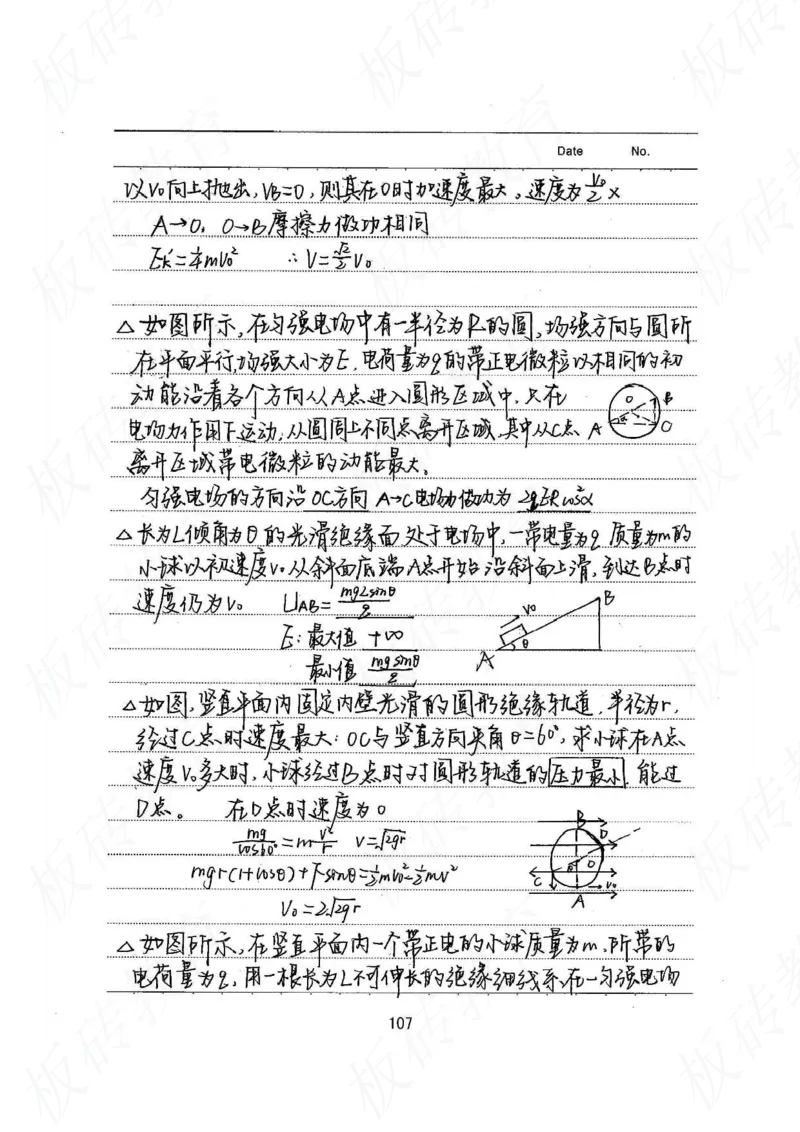 Date No.
以V₀向上抛出，VB=0，则其在O时加速度最大。速度为V₀/2 ×
A→O，O→B摩擦力做功相同
Ek'=¼mV₀² ∴V=√2/2 V₀
△如图所示，在匀强电场中有一半径为R的圆，场强方向与圆所
在平面平行，场强大小为E，电荷量为q的带正电微粒以相同的初
动能沿着各个方向从A点进入圆形区域中，只在
电场力作用下运动，从圆周上不同点离开区域，其中从C点
离开区域带电微粒的动能最大。
A O B α
匀强电场的方向沿OC方向 A→C电场力做功为 2qERcos²α
△长为L倾角为θ的光滑绝缘面处于电场中，一带电量为q 质量为m的
小球以初速度V₀从斜面底端A点开始沿斜面上滑，到达B点时
速度仍为V₀ UAB=mgLsinθ/q
E：最大值 +∞
最小值 mgsinθ/q
A V₀ θ B
△如图，竖直平面内固定内壁光滑的圆形绝缘轨道，半径为r，
经过C点时速度最大；OC与竖直方向夹角θ=60°，求小球在A点
速度V₀多大时，小球经过B点时对圆形轨道的压力最小，能过
D点。 在D点时速度为0
mg/cos60°=mV²/r V=√2gr
mgr(1+cosθ)+Frsinθ=½mV₀²-½mV²
V₀=2√2gr
B D θ O C V₀ A
△如图所示，在竖直平面内一个带正电的小球质量为m，所带的
电荷量为q，用一根长为L不可伸长的绝缘细线系在一匀强电场
107
板砖教育